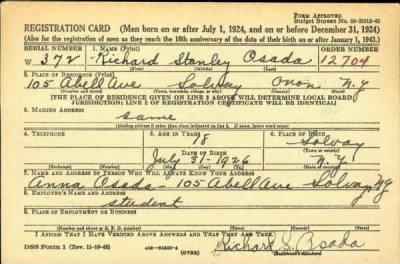 FORM APPROVED
Budget Bureau No.
REGISTRATION CARD (Men born on or after July 1, 1924, and on or before December 31, 1924)
(Also for the registration of men as they reach the 18th anniversary of the date of their birth on or after January 1, 1943.)
SERIAL NUMBER 1. NAME (Print) ORDER NUMBER
W 372 Richard Stanley Osada 12704
(First) (Middle) (Last)
2. PLACE OF RESIDENCE (Print)
105 Abell Ave Solvay Onon N.Y
(Number and street) (Town, township, village, or city) (County) (State)
[THE PLACE OF RESIDENCE GIVEN ON LINE 2 ABOVE WILL DETERMINE LOCAL BOARD
JURISDICTION; LINE 2 OF REGISTRATION CERTIFICATE WILL BE IDENTICAL]
3. MAILING ADDRESS
Same
[Mailing address if other than place indicated on line 2. If same, insert word same]
4. TELEPHONE 5. AGE IN YEARS 6. PLACE OF BIRTH
18 Solvay
DATE OF BIRTH (Town or county)
July 31-1926 N.Y.
(Mo.) (Day) (Yr.) (State or country)
7. NAME AND ADDRESS OF PERSON WHO WILL ALWAYS KNOW YOUR ADDRESS
Anna Osada - 105 Abell Ave Solvay NY
8. EMPLOYER'S NAME AND ADDRESS
student
9. PLACE OF EMPLOYMENT OR BUSINESS
(Number and street or R. F. D. number) (Town) (County) (State)
I AFFIRM THAT I HAVE VERIFIED ABOVE ANSWERS AND THAT THEY ARE TRUE.
DSS Form 1 (Rev. 11-16-42) (OVER) Richard S. Osada
(Registrant's signature)